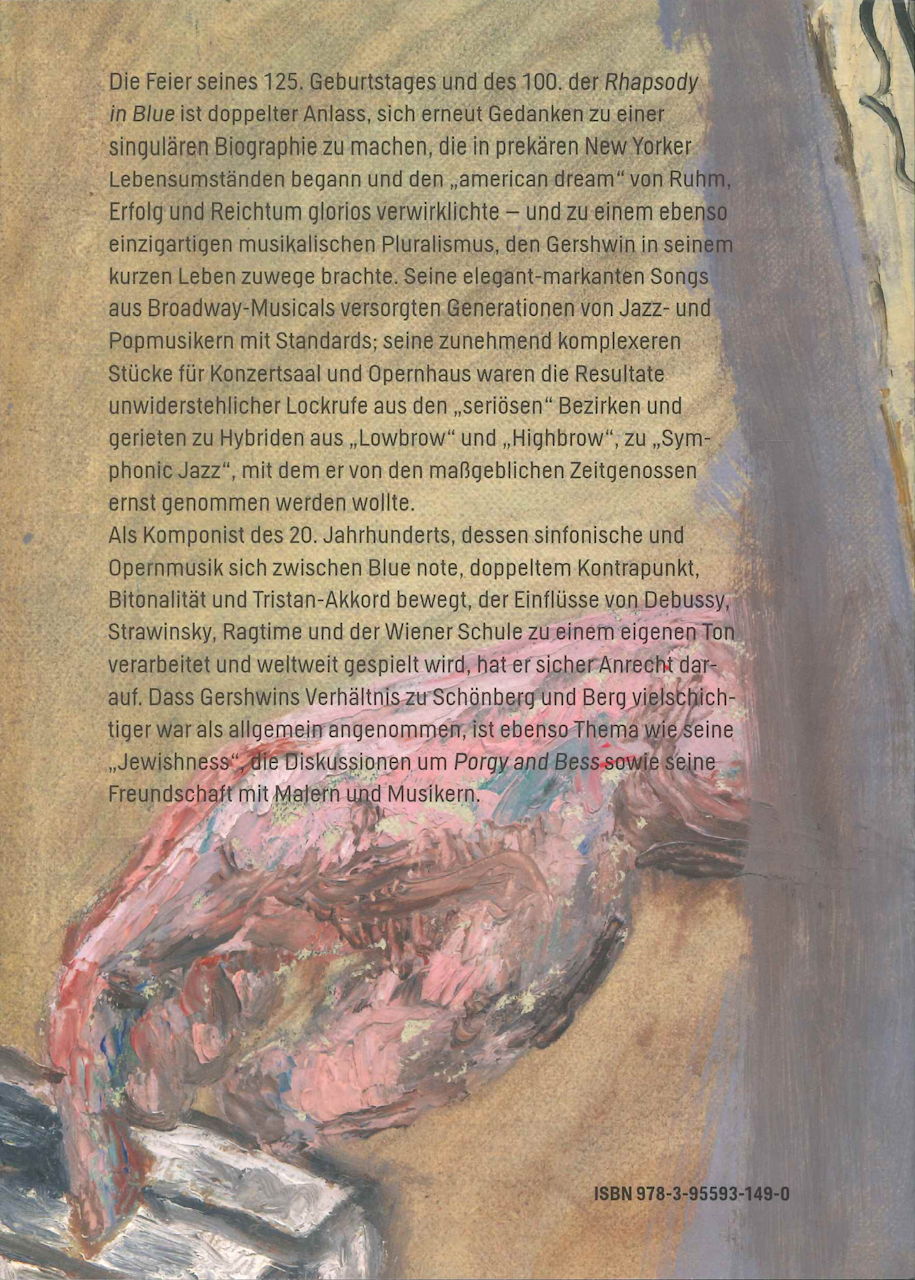 Die Feier seines 125. Geburtstages und des 100. der Rhapsody
in Blue ist doppelter Anlass, sich erneut Gedanken zu einer
singulären Biographie zu machen, die in prekären New Yorker
Lebensumständen begann und den „american dream“ von Ruhm,
Erfolg und Reichtum glorios verwirklichte – und zu einem ebenso
einzigartigen musikalischen Pluralismus, den Gershwin in seinem
kurzen Leben zuwege brachte. Seine elegant-markanten Songs
aus Broadway-Musicals versorgten Generationen von Jazz- und
Popmusikern mit Standards; seine zunehmend komplexeren
Stücke für Konzertsaal und Opernhaus waren die Resultate
unwiderstehlicher Lockrufe aus den „seriösen“ Bezirken und
gerieten zu Hybriden aus „Lowbrow“ und „Highbrow“, zu „Sym-
phonic Jazz“, mit dem er von den maßgeblichen Zeitgenossen
ernst genommen werden wollte.
Als Komponist des 20. Jahrhunderts, dessen sinfonische und
Opernmusik sich zwischen Blue note, doppeltem Kontrapunkt,
Bitonalität und Tristan-Akkord bewegt, der Einflüsse von Debussy,
Strawinsky, Ragtime und der Wiener Schule zu einem eigenen Ton
verarbeitet und weltweit gespielt wird, hat er sicher Anrecht dar-
auf. Dass Gershwins Verhältnis zu Schönberg und Berg vielschich-
tiger war als allgemein angenommen, ist ebenso Thema wie seine
„Jewishness“, die Diskussionen um Porgy and Bess sowie seine
Freundschaft mit Malern und Musikern.
ISBN 978-3-95593-149-0